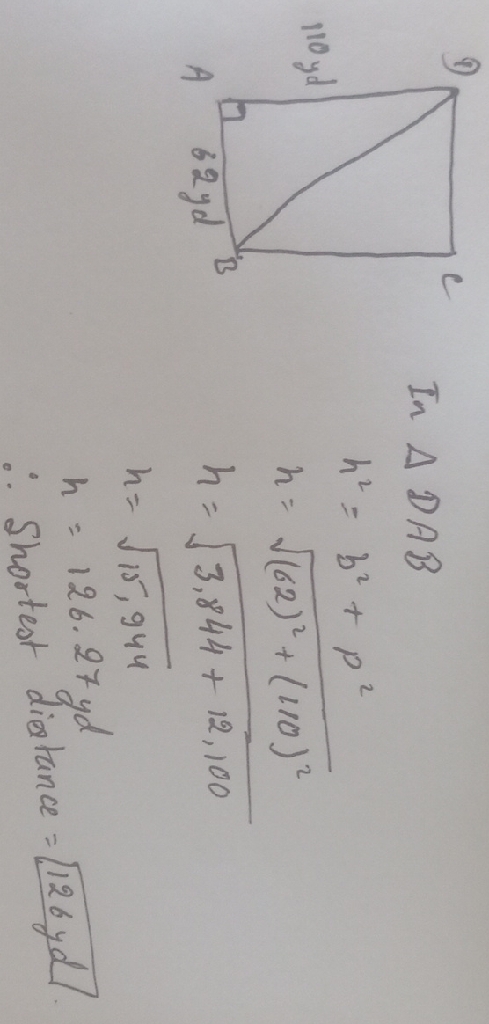 D
C
110yd
A
62yd
B
In Δ DAB
h² = b² + p²
h = √(62)² + (110)²
h = √3,844 + 12,100
h = √15,944
h = 126.27yd
∴ Shortest distance = 126yd.